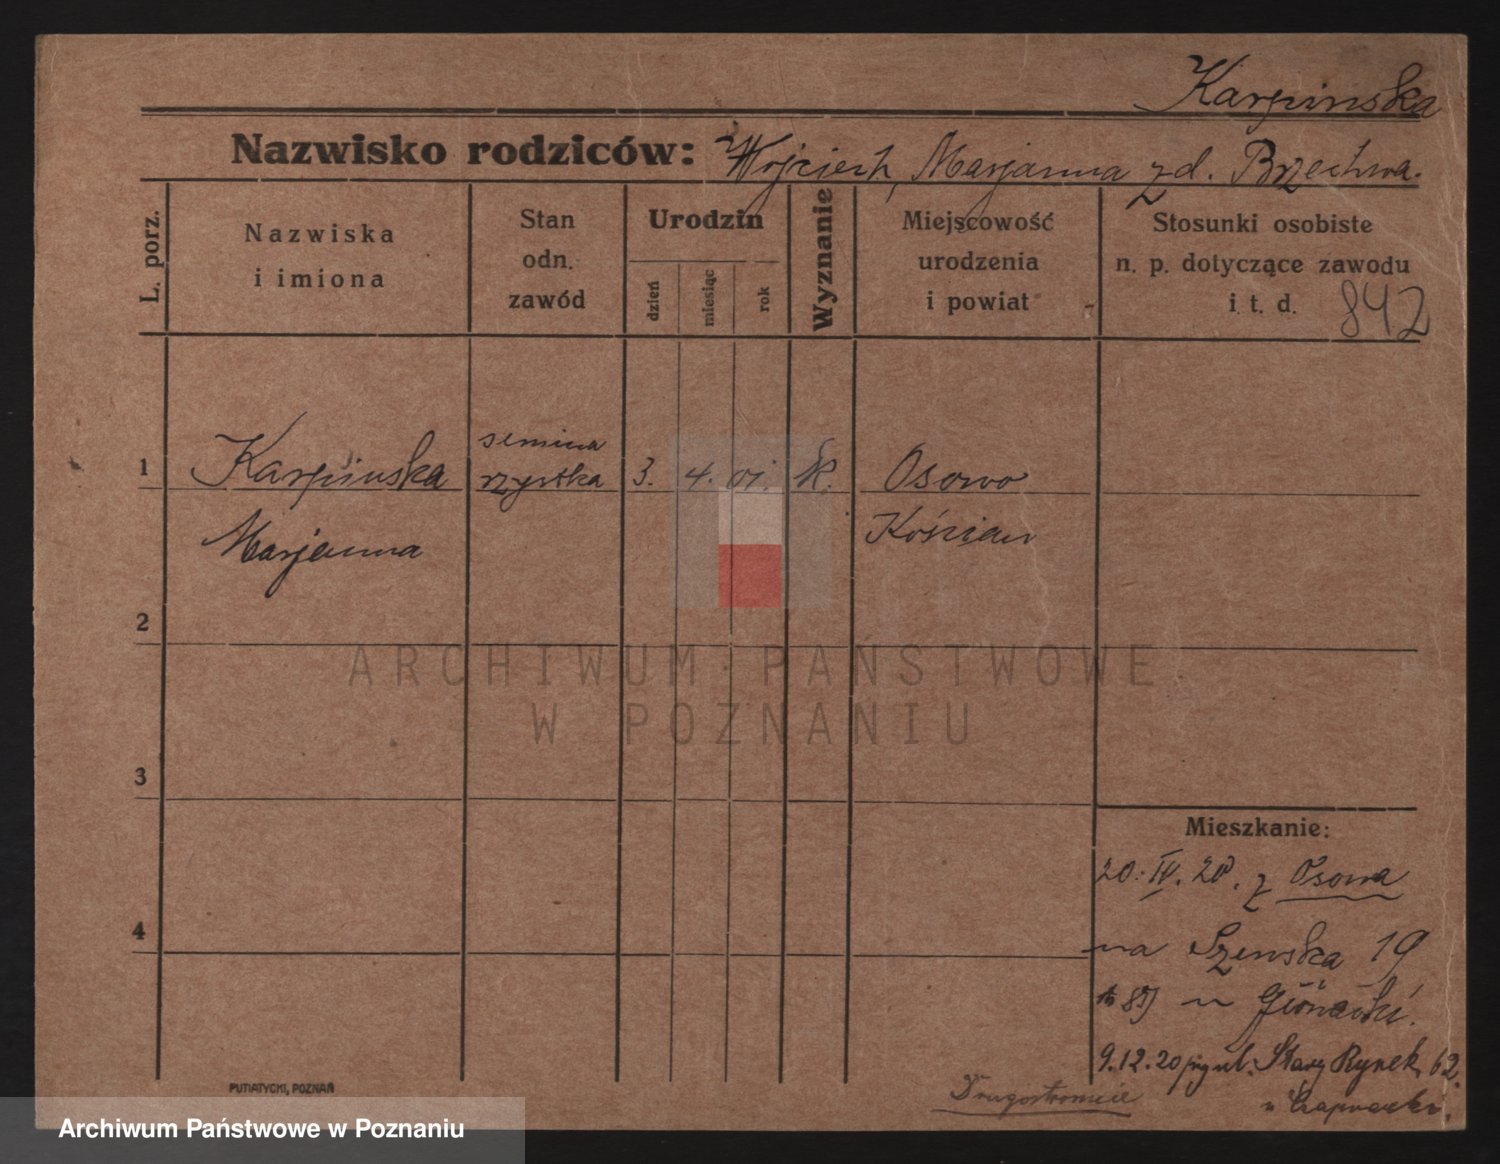 Karpinska
Nazwisko rodziców: Wojciech, Marjanna z d. Brzechwa.
L. porz.
Nazwiska
i imiona
Stan
odn.
zawód
Urodzin
dzień
miesiąc
rok
Wyznanie
Miejscowość
urodzenia
i powiat
Stosunki osobiste
n. p. dotyczące zawodu
i t. d.
842
1
Karpinska
Marjanna
semina
rzystka
3. 4. 01. k.
Osowo
Kościan
2
3
4
ARCHIWUM PAŃSTWOWE
W POZNANIU
Mieszkanie:
20. IV. 20. z Osowa
na Szewska 19
u
9.12.20 ul. Stary Rynek 62.
u
Drugostronnie
PUTIATYCKI, POZNAŃ
Archiwum Państwowe w Poznaniu